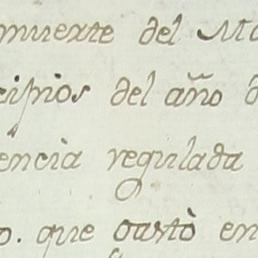 muerte del Ma
cipios del año d
encia regulada
o. que gastò en